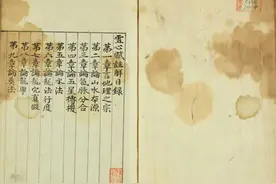 雪心賦註解目錄
第一章言地理之宗
第二章論山水本源
第三章論龍脈分合
第四章論五星
第五章論水法
第六章論龍法行度
第七章論龍穴真假
第八章論龍
第九章論葬法